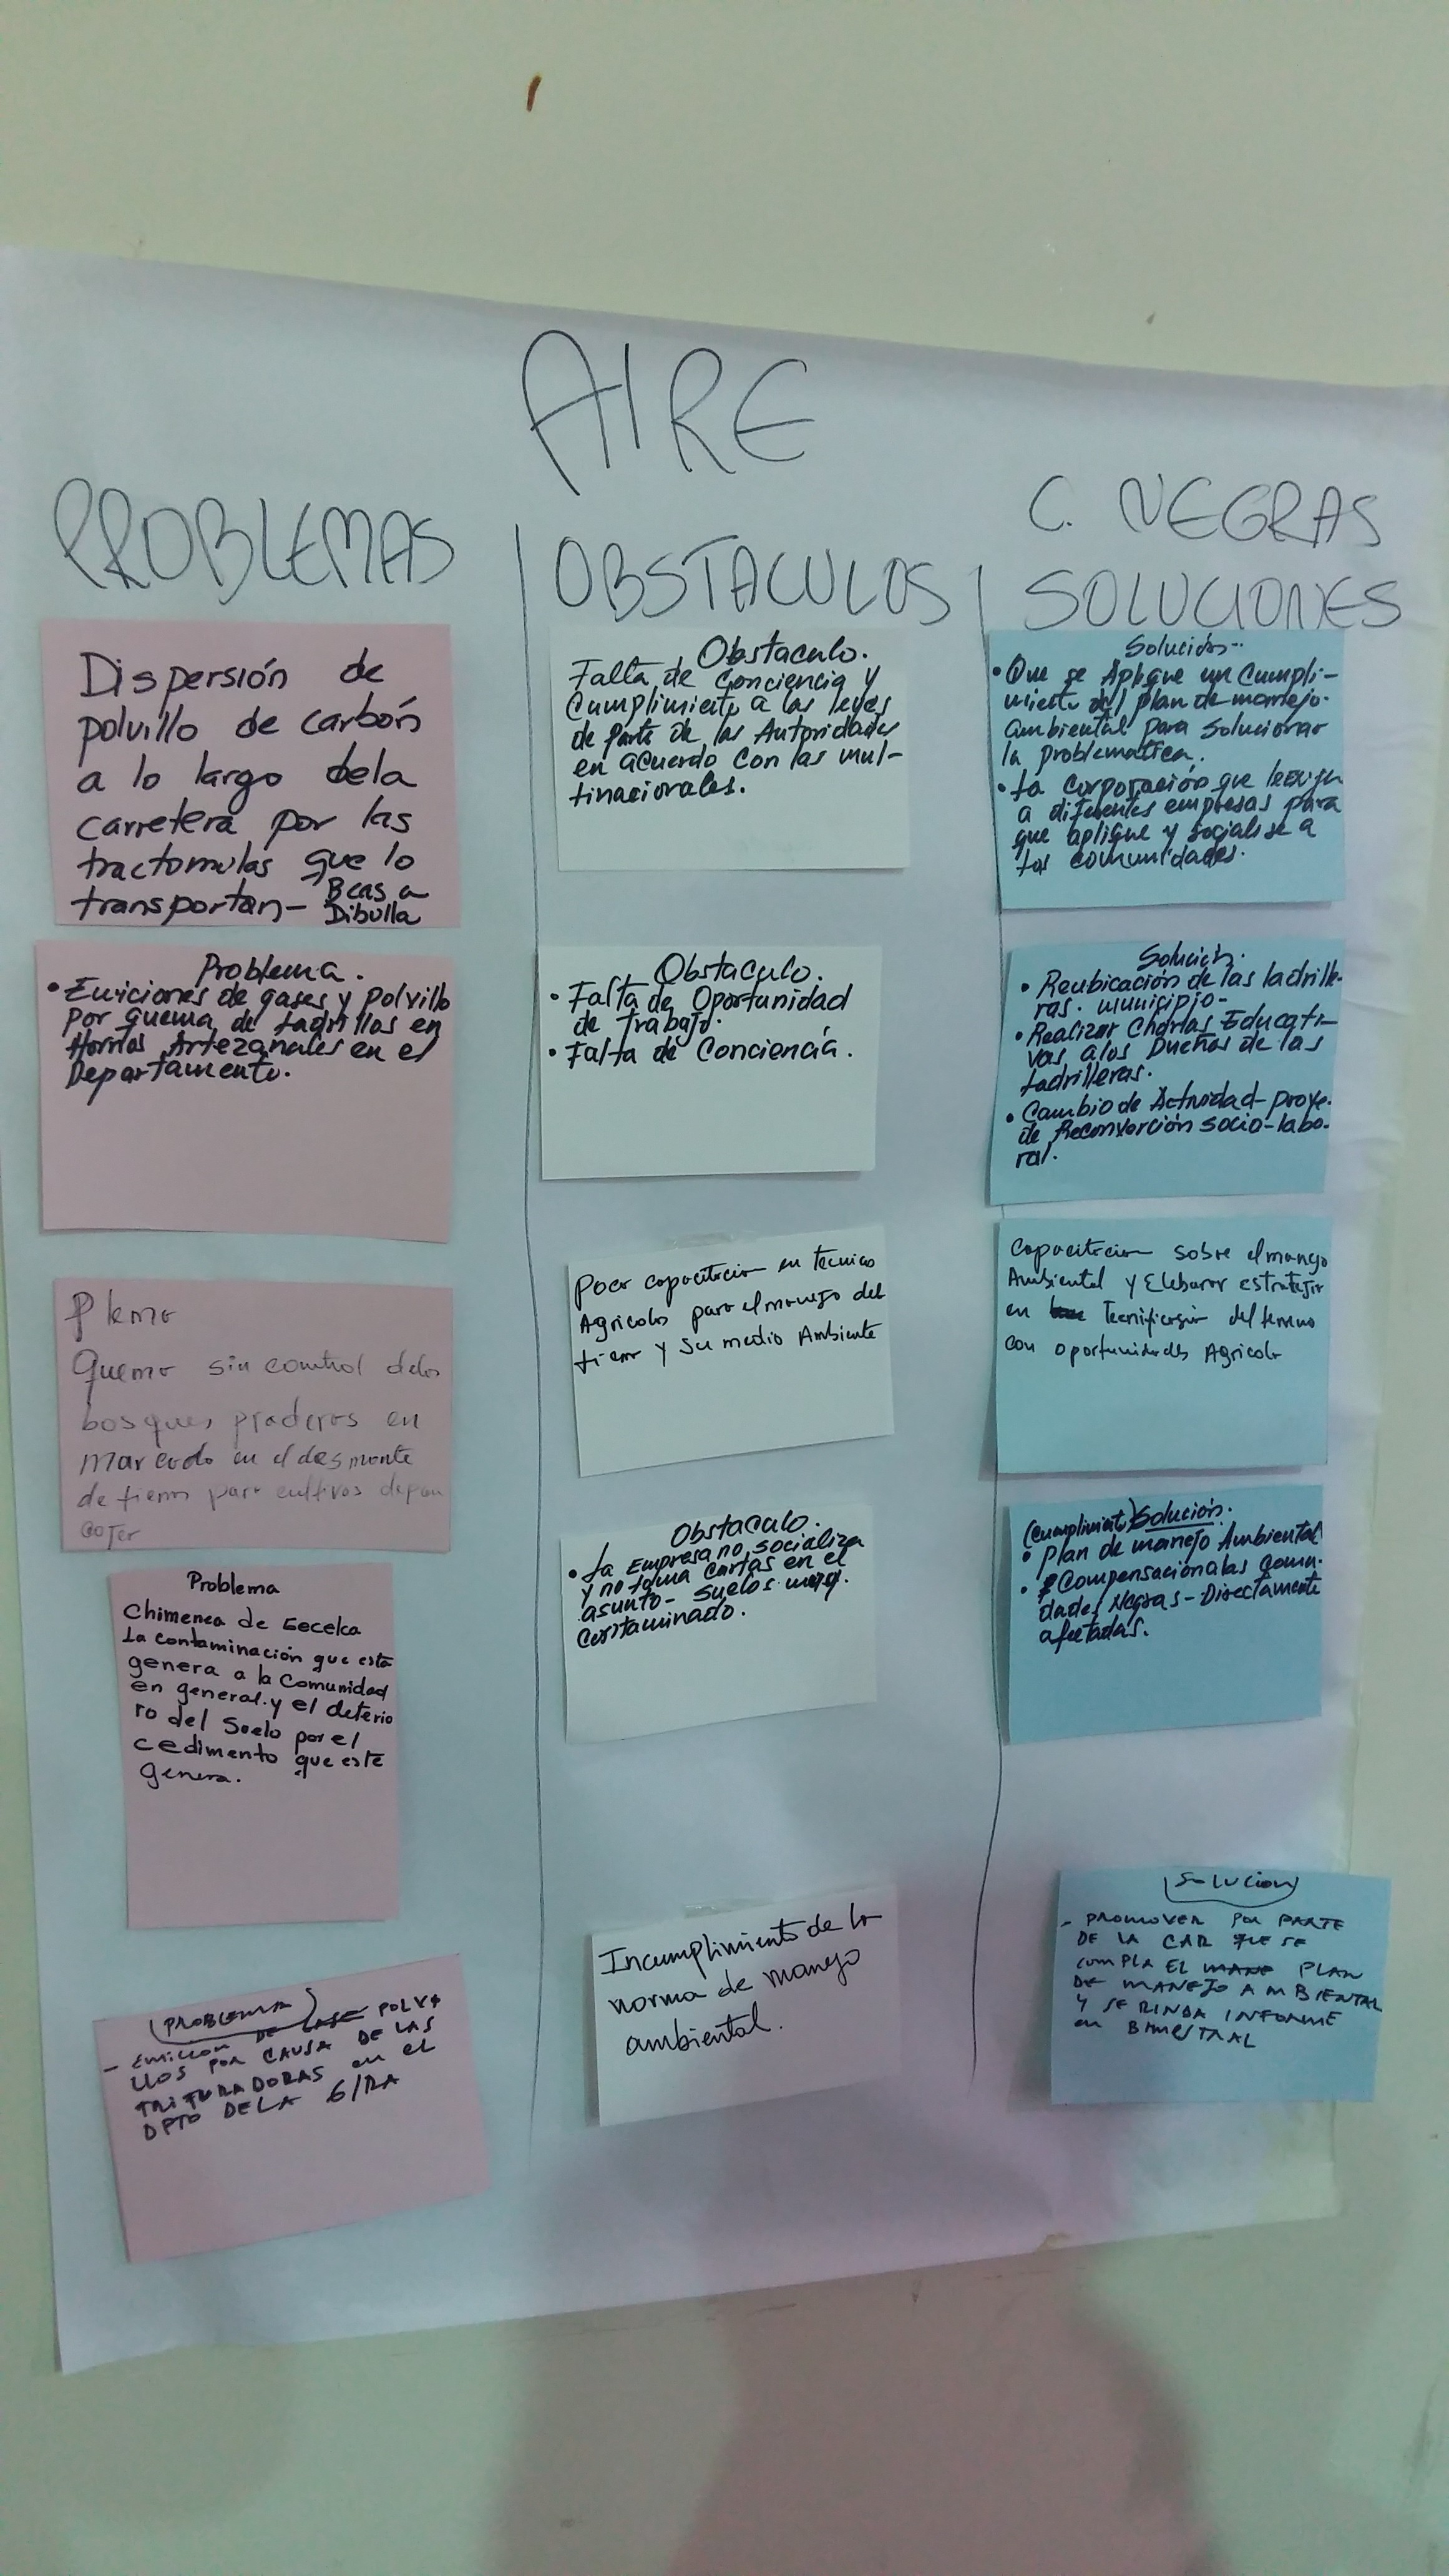 AIRE
PROBLEMAS
OBSTACULOS
C. NEGRAS
SOLUCIONES
Dispersión de
polvillo de carbón
a lo largo dela
carretera por las
tractomulas que lo
transportan- Bcas a
Dibulla
Problema.
• Emiciones de gases y polvillo
por quema de ladrillos en
Hornos Artezanales en el
Departamento.
Quema sin control delos
bosques praderas en
marcado en el desmonte
de tierras para cultivos depan
coger
Problema
Chimenea de Gecelca
La contaminación que esta
genera a la Comunidad
en general. y el deterio
ro del Suelo por el
cedimento que este
genera.
PROBLEMA
- EMICION DE GASE POLVI
LLOS POR CAUSA DE LAS
TRITURADORAS en el
DPTO DE LA G/RA
Obstaculo.
Falta de Conciencia y
Cumplimiento a las leyes
de parte de las Autoridades
en acuerdo con las mul-
tinacionales.
Obstaculo.
• Falta de Oportunidad
de Trabajo.
• Falta de Conciencia.
Poca capacitacion en tecnicas
Agricolas para el manejo del
tierra y su medio Ambiente
Obstaculo.
• La Empresa no socializa
y no toma cartas en el
asunto- suelos muy.
Contaminado.
Incumplimiento de la
norma de manejo
ambiental.
Solución..
• Que se Aplique un Cumpli-
miento del plan de manejo.
Ambiental para Solucionar
la problematica.
• La Corporación que le exija
a diferentes empresas para
que aplique y socialise a
las comunidades.
Solución.
• Reubicación de las ladrille-
ras. municipio-
• Realizar Charlas Educati-
vas a los Dueños de las
ladrilleras.
• Cambio de Actividad- proye.
de Reconversión socio-labo-
ral.
Capacitacion sobre el manejo
Ambiental y Elaborar estrategias
en Tecnificasion del terreno
con oportunidades Agricola
(Cumplimient) Solución.
• Plan de manejo Ambiental
• Compensación a las Comu-
dades Negras - Directamente
afectadas.
Solucion
- PROMOVER POR PARTE
DE LA CAR QUE SE
COMPLA EL MANE PLAN
DE MANEJO AMBIENTAL
Y SE RINDA INFORME
en BIMESTRAL